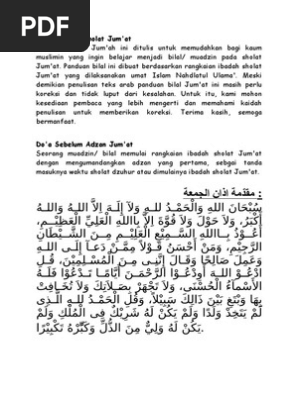 PDF
Sholat Jum'at
Jum'ah ini ditulis untuk memudahkan bagi kaum
muslimin yang ingin belajar menjadi bilal/ muadzin pada sholat
Jum'at. Panduan bilal ini dibuat berdasarkan rangkaian ibadah sholat
Jum'at yang dilaksanakan umat Islam Nahdlatul Ulama'. Meski
demikian penulisan teks arab panduan bilal Jum'at ini masih perlu
koreksi dan tidak luput dari kesalahan. Untuk itu, kami mohon
kesediaan pembaca yang lebih mengerti dan memahami kaidah
penulisan untuk memberikan koreksi. Terima kasih, semoga
bermanfaat.
Do'a Sebelum Adzan Jum'at
Seorang muadzin/ bilal memulai rangkaian ibadah sholat Jum'at
dengan mengumandangkan adzan yang pertama, sebagai tanda
masuknya waktu sholat dzuhur atau dimulainya ibadah sholat Jum'at.
مقدمة اذان الجمعة :
سُبْحَانَ اللهِ وَالْحَمْدُ لله وَلاَ إِلَهَ إِلاَّ اللهُ وَاللهُ
أَكْبَرُ، وَلاَ حَوْلَ وَلاَ قُوَّةَ إِلاَّ بِاللهِ الْعَلِيِّ الْعَظِيْمِ،
أَعُوْذُ بِاللهِ السَّمِيْعِ الْعَلِيْمِ مِنَ الشَّيْطَانِ
الرَّجِيْمِ، وَمَنْ أَحْسَنُ قَوْلاً مِمَّنْ دَعَا إِلَى اللهِ
وَعَمِلَ صَالِحًا وَقَالَ إِنَّنِى مِنَ الْمُسْلِمِيْنَ، قُلِ
ادْعُوْ اللهَ أَوِدْعُوْا الرَّحْمَنَ أَيَّامَّا تَدْعُوْا فَلَهُ
الأَسْمَاءُ الْحُسْنَى، وَلاَ تَجْهَرْ بِصَلاَتِكَ وَلاَ تُخَافِتْ
بِهَا وَبْتَغِ بَيْنَ ذَالِكَ سَبِيْلاً، وَقُلِ الْحَمْدُ لِلهِ الَّذِى
لَمْ يَتَّخِذْ وَلَدًا وَلَمْ يَكُنْ لَهُ شَرِيْكٌ فِى الْمُلْكِ وَلَمْ
يَكُنْ لَهُ وَلِيٌّ مِنَ الذُّلِّ وَكَبِّرْهُ تَكْبِيْرًا.